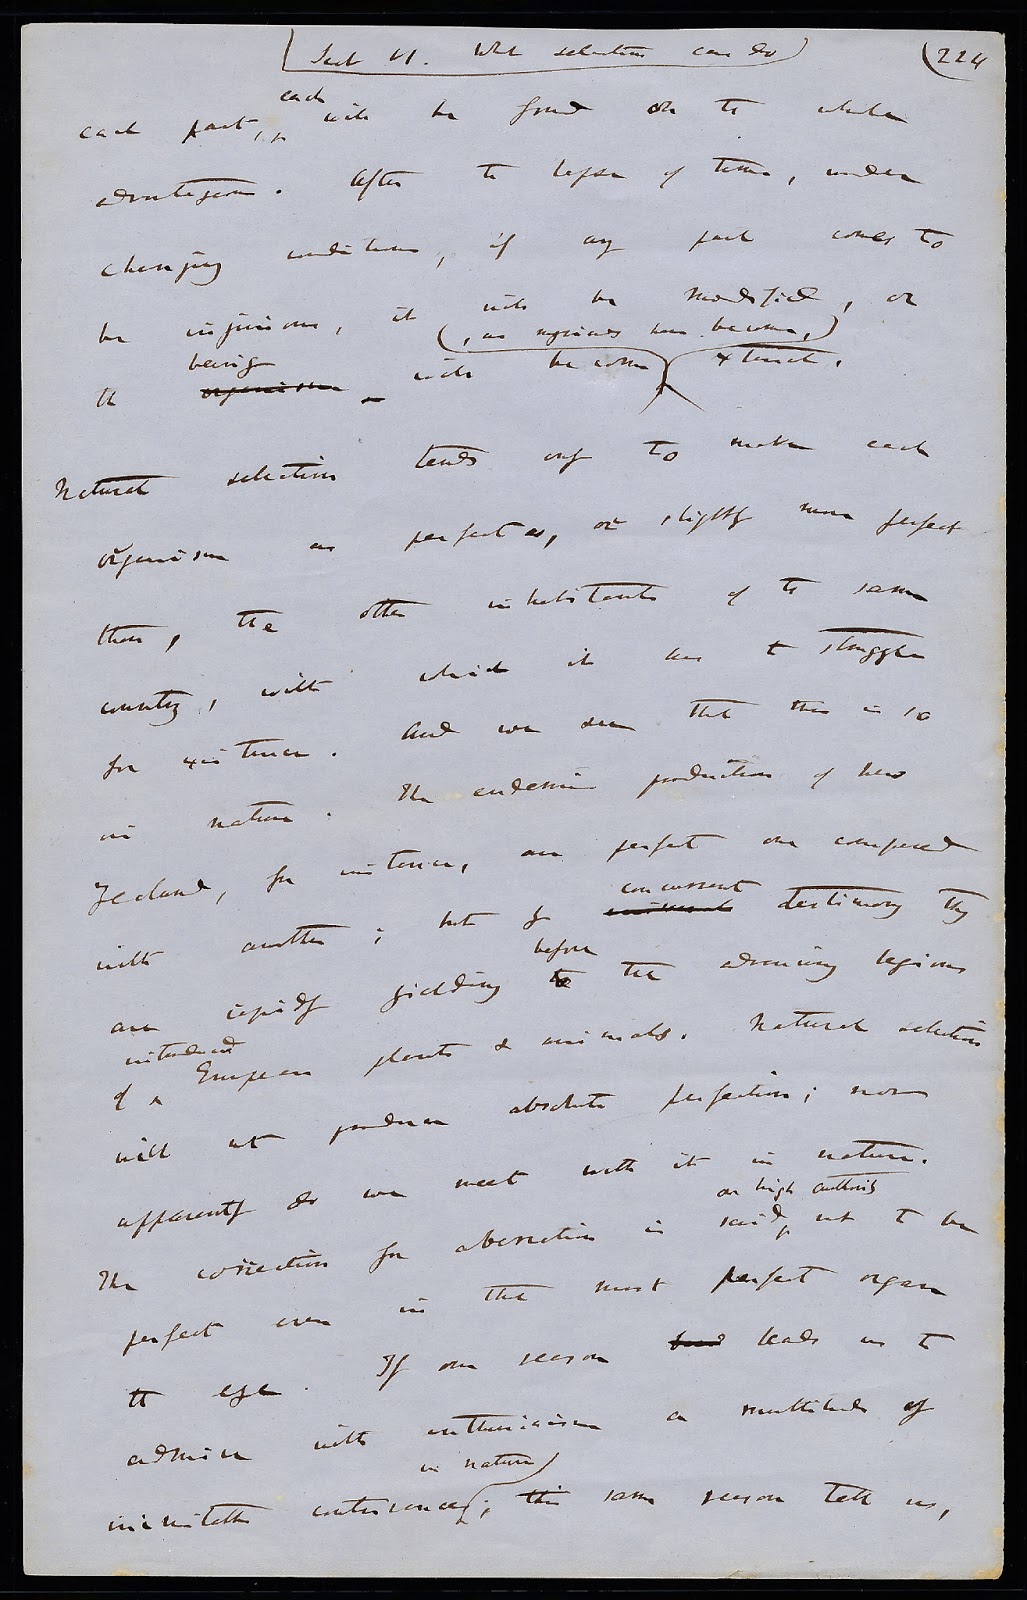 Sect VI. What selection can do
224
each part, each will be found on the whole
advantageous. After the lapse of time, under
changing conditions, if any part comes to
be injurious, it will be modified, or
(, as myriads have become,)
the organism being will become extinct.
Natural selection tends only to make each
organism as perfect as, or slightly more perfect
than, the other inhabitants of the same
country, with which it has to struggle
for existence. And we see that this is so
in nature. The endemic productions of New
Zealand, for instance, are perfect one compared
with another; but by concurrent testimony they
are rapidly yielding to before the advancing legions
of introduced European plants & animals. Natural selection
will not produce absolute perfection; nor
apparently do we meet with it in nature.
The correction for aberration is said, on high authority not to be
perfect even in that most perfect organ
the eye. If our reason leads us to
admire with enthusiasm a multitude of
inimitable contrivances in nature; this same reason tells us,